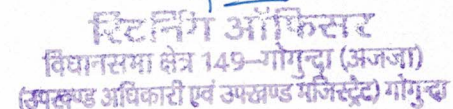 रिटर्निंग ऑफिसर
विधानसभा क्षेत्र 149-गोगुन्दा (अजजा)
(उपखण्ड अधिकारी एवं उपखण्ड मजिस्ट्रेट) गोगुन्दा